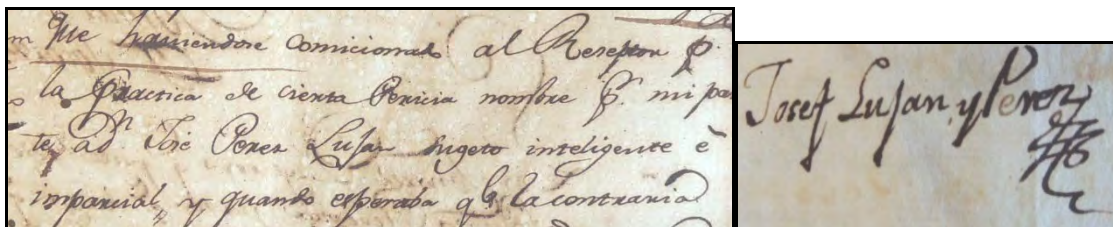 Que haviendose comicionado al Reseptor p.
la Practica de cierta Pericia nombre p. mi par
te, a Dn José Perez Lujan sugeto inteligente è
imparcial, y quando esperaba qe. la contraria
Josef Lujan y Perez